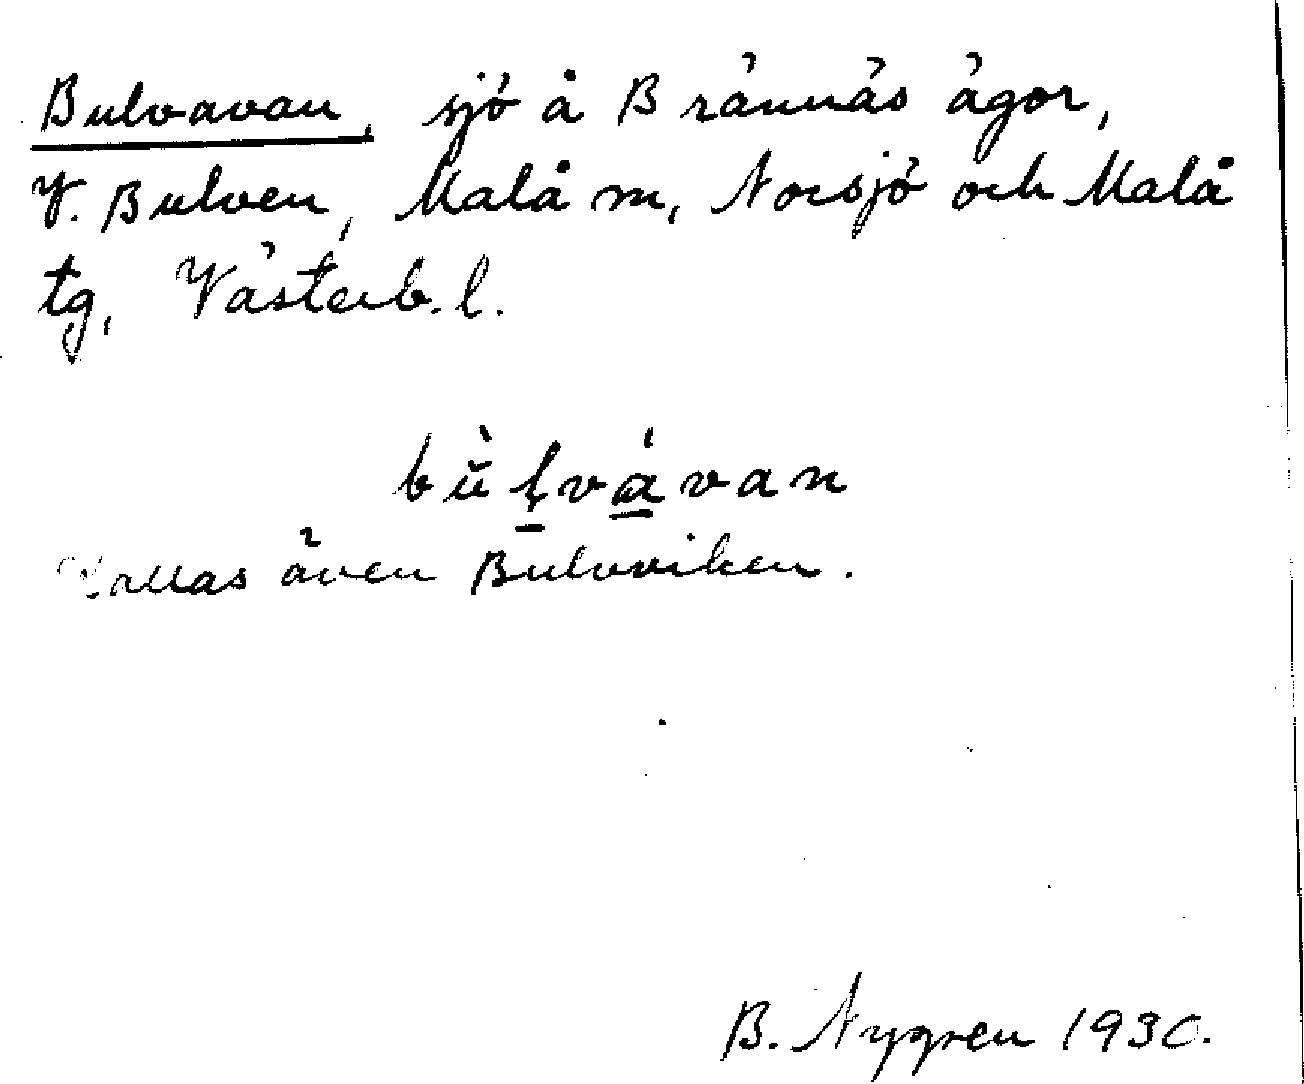 Bulvavan, sjö å Brännäs ägor,
V. Bulven, Malå sn, Norsjö och Malå
tg, Västerb. l.
bùlvávan
Kallas även Bulvviken.
B. Nygren 1930.